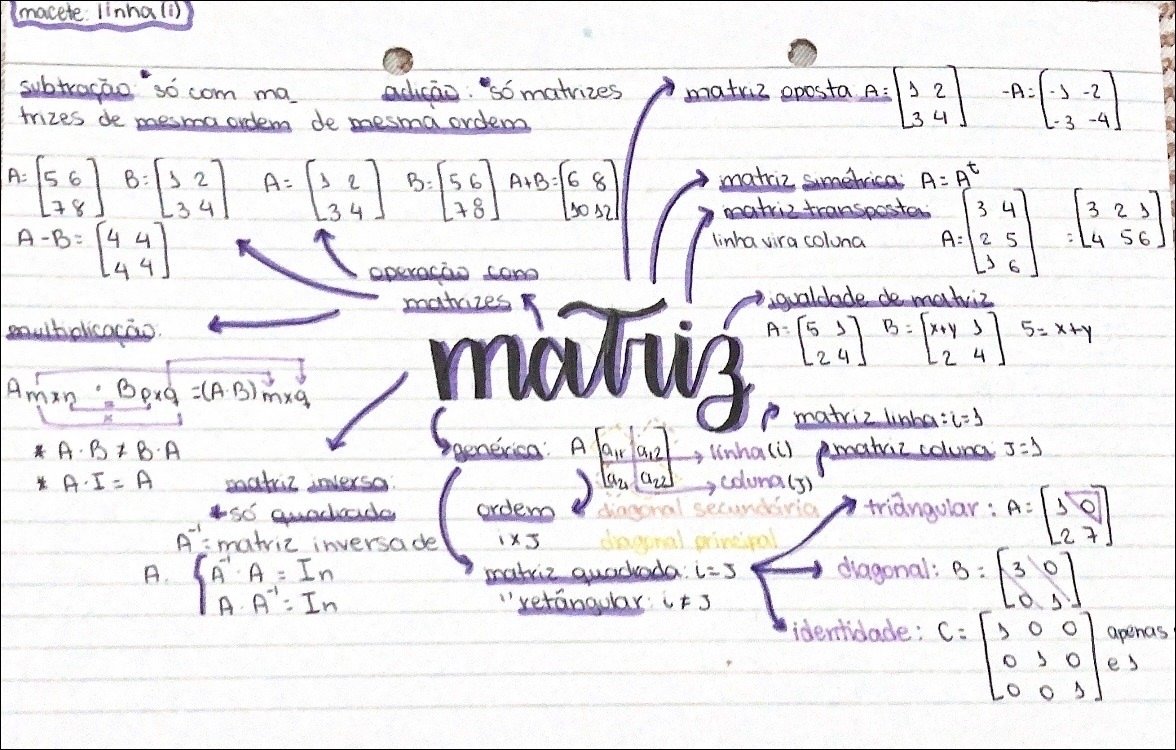 macete: linha (i)
subtração: só com ma_
trizes de mesma ordem
A= [5 6
7 8]
B= [1 2
3 4]
A-B= [4 4
4 4]
adição: só matrizes
de mesma ordem
A= [1 2
3 4]
B= [5 6
7 8]
A+B= [6 8
10 12]
operação com
matrizes
multiplicação:
Amxn · Bpxq = (A·B)mxq
=
* A·B ≠ B·A
* A·I = A
matriz inversa:
só quadrada
A⁻¹= matriz inversa de
A. { A⁻¹·A = In
A·A⁻¹= In
matriz
matriz oposta A= [1 2
3 4]
-A= [-1 -2
-3 -4]
matriz simétrica: A= Aᵗ
matriz transposta:
linha vira coluna
A= [3 4
2 5
1 6]
= [3 2 1
4 5 6]
igualdade de matriz
A= [5 1
2 4]
B= [x+y 1
2 4]
5= x+y
matriz linha: i=1
matriz coluna J=1
genérica: A [a11 a12
a21 a22]
linha (i)
coluna (J)
diagonal secundária
diagonal principal
ordem
i x J
matriz quadrada: i=J
" retângular: i ≠ J
triângular: A= [1 0
2 7]
diagonal: B= [3 0
0 1]
identidade: C= [1 0 0
0 1 0
0 0 1]
apenas
e 1